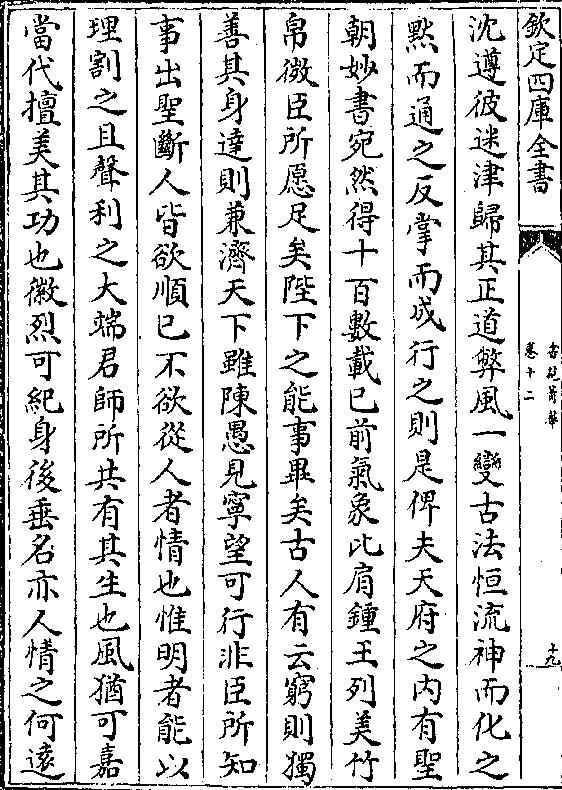 欽定四庫全書
古今符藥
卷十二
十九
沈遵彼迷津歸其正道弊風一變古法恒流神而化之
默而通之反掌而成行之則是俾夫天府之内有聖
朝妙書宛然得十百數載已前氣象比肩鍾王列美竹
帛微臣所愿足矣陛下之能事畢矣古人有云窮則獨
善其身達則兼濟天下雖陳愚見寧望可行非臣所知
事出聖斷人皆欲順已不欲從人者情也惟明者能以
理割之且聲利之大端君師所共有其生也風猶可嘉
當代擅美其功也徽烈可紀身後垂名亦人情之何遠